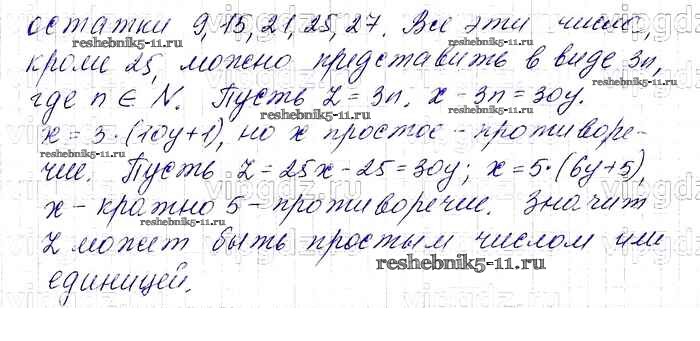 остатки 9, 15, 21, 25, 27. Все эти числа,
кроме 25, можно представить в виде 3n,
где n ∈ N. Пусть Z = 3n. x - 3n = 30y.
x = 3·(10y+1), но x простое - противоре-
чие. Пусть Z = 25 x - 25 = 30y; x = 5·(6y+5),
x - кратно 5 - противоречие. Значит
Z может быть простым числом или
единицей.
reshebnik5-11.ru
reshebnik5-11.ru
reshebnik5-11.ru
reshebnik5-11.ru
reshebnik5-11.ru
reshebnik5-11.ru